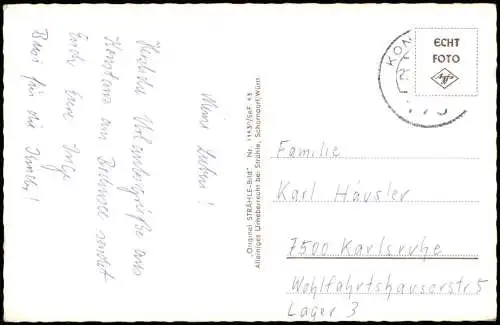 Meine Lieben!
Herzliche Urlaubsgrüße aus
Konstanz am Bodensee sendet
Euch Eure Inge
"Original STRÄHLE-Bild" Nr.
Alleiniges Urheberrecht bei Strähle, Schorndorf/Württ.
KON
ECHT
FOTO
Familie
Karl Häusler
7500 Karlsruhe
Wohlfahrtshauserstr 5
Lager 3